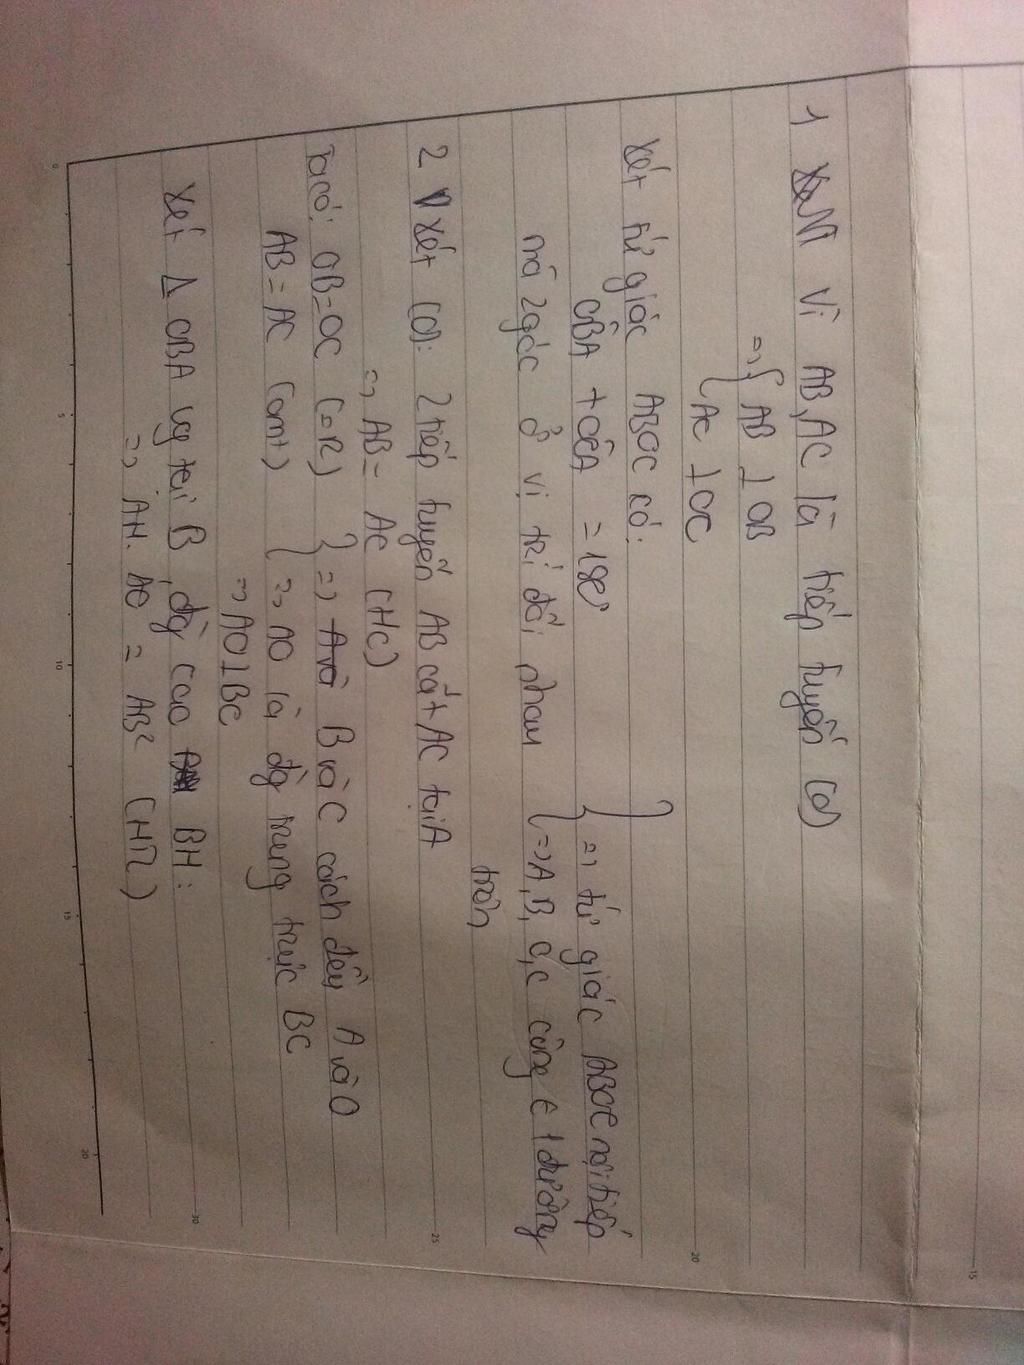 1 Vì AB, AC là tiếp tuyến (O)
=> { AB ⊥ OB
AC ⊥ OC
Xét tứ giác ABOC có:
OBA + OCA = 180°
mà 2 góc ở vị trí đối nhau
} => tứ giác ABOC nội tiếp
=> A, B, O, C cùng ∈ 1 đường
tròn
2 Xét (O): 2 tiếp tuyến AB cắt AC tại A
=> AB = AC (tHc)
Ta có: OB = OC (=R) } => B và C cách đều A và O
AB = AC (cmt) } => AO là đg trung trực BC
=> AO ⊥ BC
Xét Δ OBA vg tại B, đg cao BH:
=> AH. AO = AB² (HTL)
0 5 10 15 20
20 25 30
15